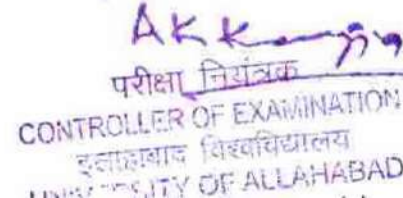 परीक्षा नियंत्रक
CONTROLLER OF EXAMINATION
इलाहाबाद विश्वविद्यालय
OF ALLAHABAD